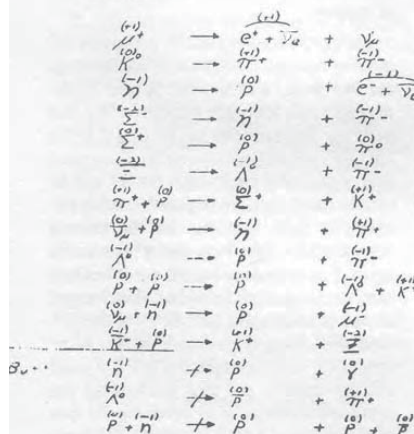 (+1) μ⁺ → (+1) e⁺ + ν̄e + ν̄μ
(0) K⁰ → (+1) π⁺ + (-1) π⁻
(-1) n → (0) p + (-1) e⁻ + ν̄e
(-2) Σ⁻ → (-1) n + (-1) π⁻
(0) Σ⁺ → (0) p + (0) π⁰
(-2) Ξ → (-1) Λ⁰ + (-1) π⁻
(+1) π⁺ + (0) p → (0) Σ⁺ + (+1) K⁺
(0) ν̄μ + (0) p → (-1) n + (+1) μ⁺
(-1) Λ⁰ → (0) p + (-1) π⁻
(0) p + (0) p → (0) p + (-1) Λ⁰ + (+1) K⁺
(0) νμ + (-1) n → (0) p + (-1) μ⁻
(-1) K⁻ + (0) p → (+1) K⁺ + (-2) Ξ
(-1) n ↛ (0) p + (0) γ
(-1) Λ⁰ ↛ (0) p + (+1) π⁺
(0) p + (-1) n ↛ (0) p + (0) p +